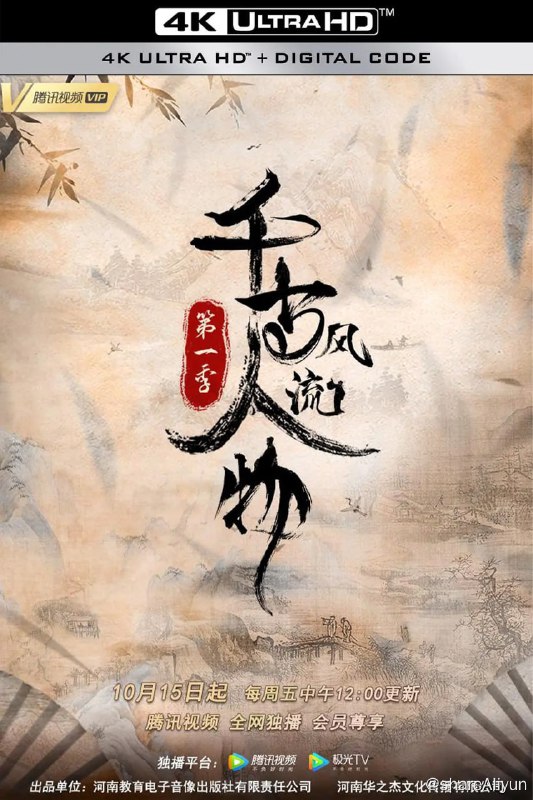 4K ULTRA HD™
4K ULTRA HD™ + DIGITAL CODE
腾讯视频 VIP
千古风流人物
第一季
10月15日起 每周五中午12:00更新
腾讯视频 全网独播 会员尊享
独播平台: 腾讯视频 不负好时光 极光TV
出品单位: 河南教育电子音像出版社有限责任公司 河南华之杰文化传播有限公司
@shareAliyun